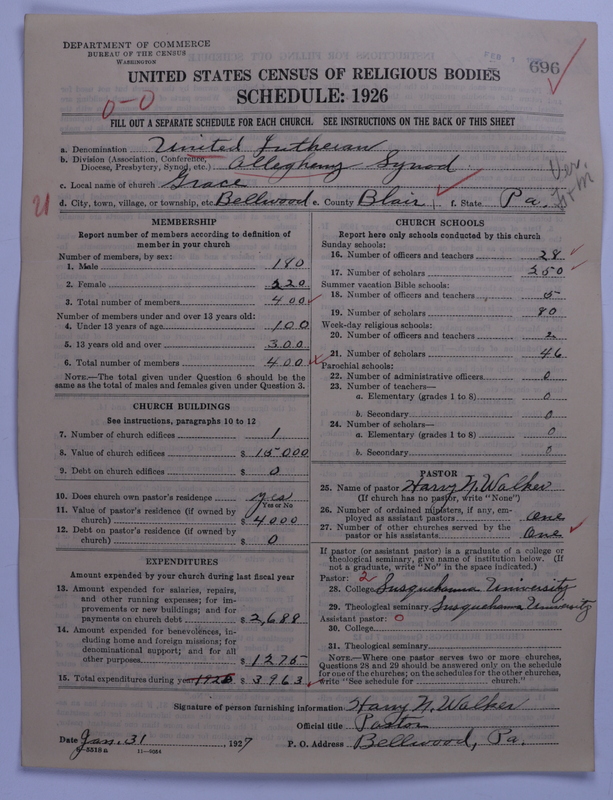 DEPARTMENT OF COMMERCE
BUREAU OF THE CENSUS
WASHINGTON
FEB
696
UNITED STATES CENSUS OF RELIGIOUS BODIES
SCHEDULE: 1926
0-0
FILL OUT A SEPARATE SCHEDULE FOR EACH CHURCH. SEE INSTRUCTIONS ON THE BACK OF THIS SHEET
a. Denomination United Lutheran
b. Division (Association, Conference, Diocese, Presbytery, Synod, etc.) Allegheny Synod
c. Local name of church Grace
d. City, town, village, or township, etc. Bellwood e. County Blair f. State Pa.
Ver.
MEMBERSHIP
Report number of members according to definition of
member in your church
Number of members, by sex:
1. Male 180
2. Female 220
3. Total number of members 400
Number of members under and over 13 years old:
4. Under 13 years of age 100
5. 13 years old and over 300
6. Total number of members 400
NOTE.—The total given under Question 6 should be the
same as the total of males and females given under Question 3.
CHURCH BUILDINGS
See instructions, paragraphs 10 to 12
7. Number of church edifices 1
8. Value of church edifices $ 15000
9. Debt on church edifices $ 0
10. Does church own pastor's residence yes
Yes or No
11. Value of pastor's residence (if owned by
church) $ 4000
12. Debt on pastor's residence (if owned by
church) $ 0
EXPENDITURES
Amount expended by your church during last fiscal year
13. Amount expended for salaries, repairs,
and other running expenses; for im-
provements or new buildings; and for
payments on church debt $ 2,688
14. Amount expended for benevolences, in-
cluding home and foreign missions; for
denominational support; and for all
other purposes $ 1275
15. Total expenditures during year 1926 $ 3963
CHURCH SCHOOLS
Report here only schools conducted by this church
Sunday schools:
16. Number of officers and teachers 28
17. Number of scholars 250
Summer vacation Bible schools:
18. Number of officers and teachers 5
19. Number of scholars 80
Week-day religious schools:
20. Number of officers and teachers 2
21. Number of scholars 46
Parochial schools:
22. Number of administrative officers 0
23. Number of teachers—
a. Elementary (grades 1 to 8) 0
b. Secondary 0
24. Number of scholars—
a. Elementary (grades 1 to 8) 0
b. Secondary 0
PASTOR
25. Name of pastor Harry N. Walker
(If church has no pastor, write "None")
26. Number of ordained ministers, if any, em-
ployed as assistant pastors one
27. Number of other churches served by the
pastor or his assistants One
If pastor (or assistant pastor) is a graduate of a college or
theological seminary, give name of institution below. (If
not a graduate, write "No" in the space indicated.)
Pastor: 2
28. College Susquehanna University
29. Theological seminary Susquehanna University
Assistant pastor: 0
30. College
31. Theological seminary
NOTE.—Where one pastor serves two or more churches,
Questions 28 and 29 should be answered only on the schedule
for one of the churches; on the schedules for the other churches,
write "See schedule for church."
Signature of person furnishing information Harry N. Walker
Official title Pastor
Date Jan. 31 1927 P. O. Address Bellwood, Pa.